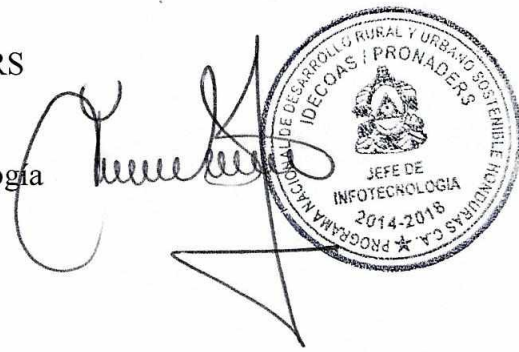 RS
ogía
PROGRAMA NACIONAL DE DESARROLLO RURAL Y URBANO SOSTENIBLE HONDURAS C.A.
IDECOAS / PRONADERS
JEFE DE
INFOTECNOLOGIA
2014-2018